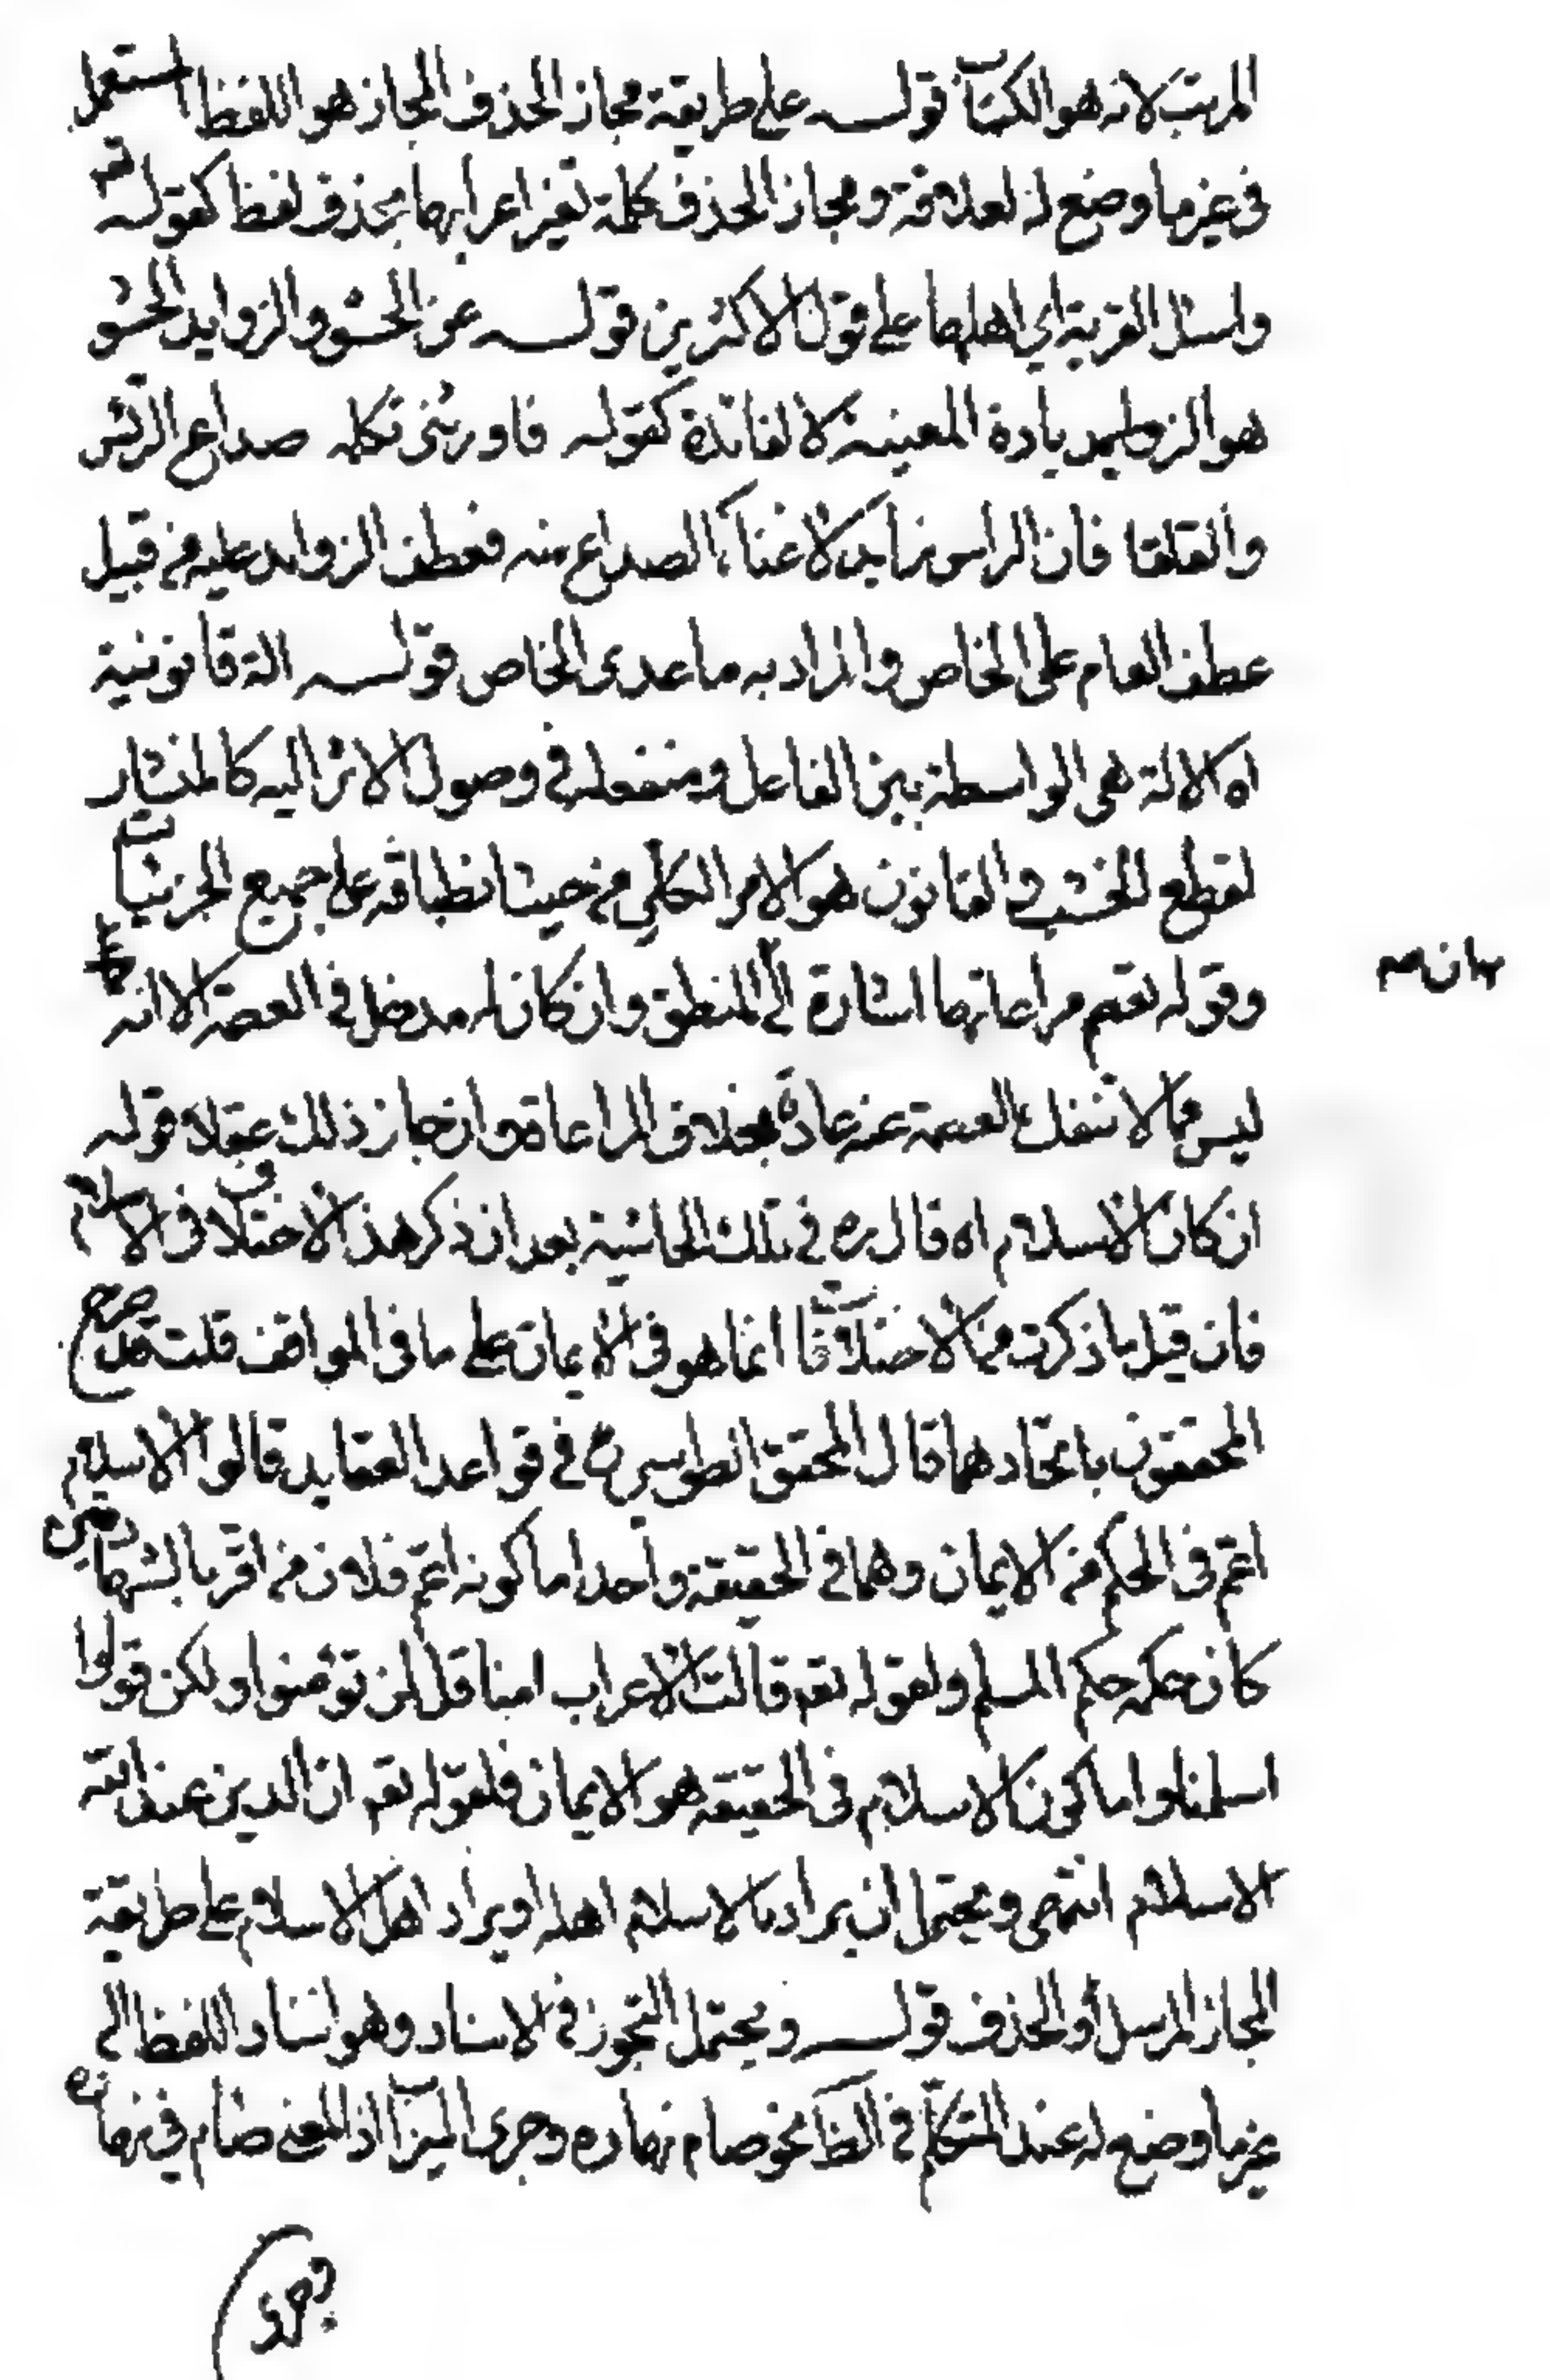 المرتب لانه هو الكتاب قوله على طريقة مجاز الحذف المجاز هو اللفظ المستعمل
فى غير ما وضع له لعلاقة و مجاز الحذف كلمة تغير اعرابها بحذف لفظ كقوله تع
واسئل القرية اي اهلها على قول الاكثرين قوله عن الحشو والزوايد الحشو
هو الزيادة المعينة لا لفائدة كقوله صداع الرئس
والقلقا فان الراس زايد لاغناء الصداع منه فعطف الزوايد عليه من قبيل
عطف العام على الخاص والمراد به ما عدى الخاص قوله الة قانونية
اه الالة هى الواسطة بين الفاعل ومنفعله فى وصول الاثر اليه كالمنشار
لقطع الخشب و القانون هو الامر الكلي من حيث انطباقه على جميع الجزئيات
وقوله تعصم مراعاتها اشارة الى المنطق وان كان له مدخل فى العصمة الا انه
ليس مما لا تنفك العصمة عنه عادة بخلاف المراعاة وان جاز ذلك عقلا قوله
ان كان الاسلام اه قال ره فى تلك الحاشية بعد ان ذكر هذا الاختلاف فى الاسلام
فان قيل ما ذكرت من الاختلاف انما هو فى الايمان على ما فى المواقف قلت قد صرح
المحققون باتحادهما قال المحقق الطوسي ره فى قواعد العقايد قالوا الاسلام
اعم فى الحكم من الايمان وهما فى الحقيقة واحد اما كونه اعم فلان من اقر بالشهادتين
كان حكمه حكم المسلم ولقوله تعه قالت الاعراب امنا قل لن تؤمنوا ولكن قولوا
اسلمنا واما كون الاسلام فى الحقيقه هو الايمان فلقوله تعه ان الدين عند الله
الاسلام انتهى و يحتمل ان يراد بالاسلام اهله او يراد اهل الاسلام على طريقة
المجاز المرسل او الحذف قوله و يحتمل التجوز فى الاسناد وهو اسناد اللفظ الى
غير ما وضع له عند المتكلم فى الظا نحو صام نهاره وجرى الميزاب اذ المعنى صام فى نهاره